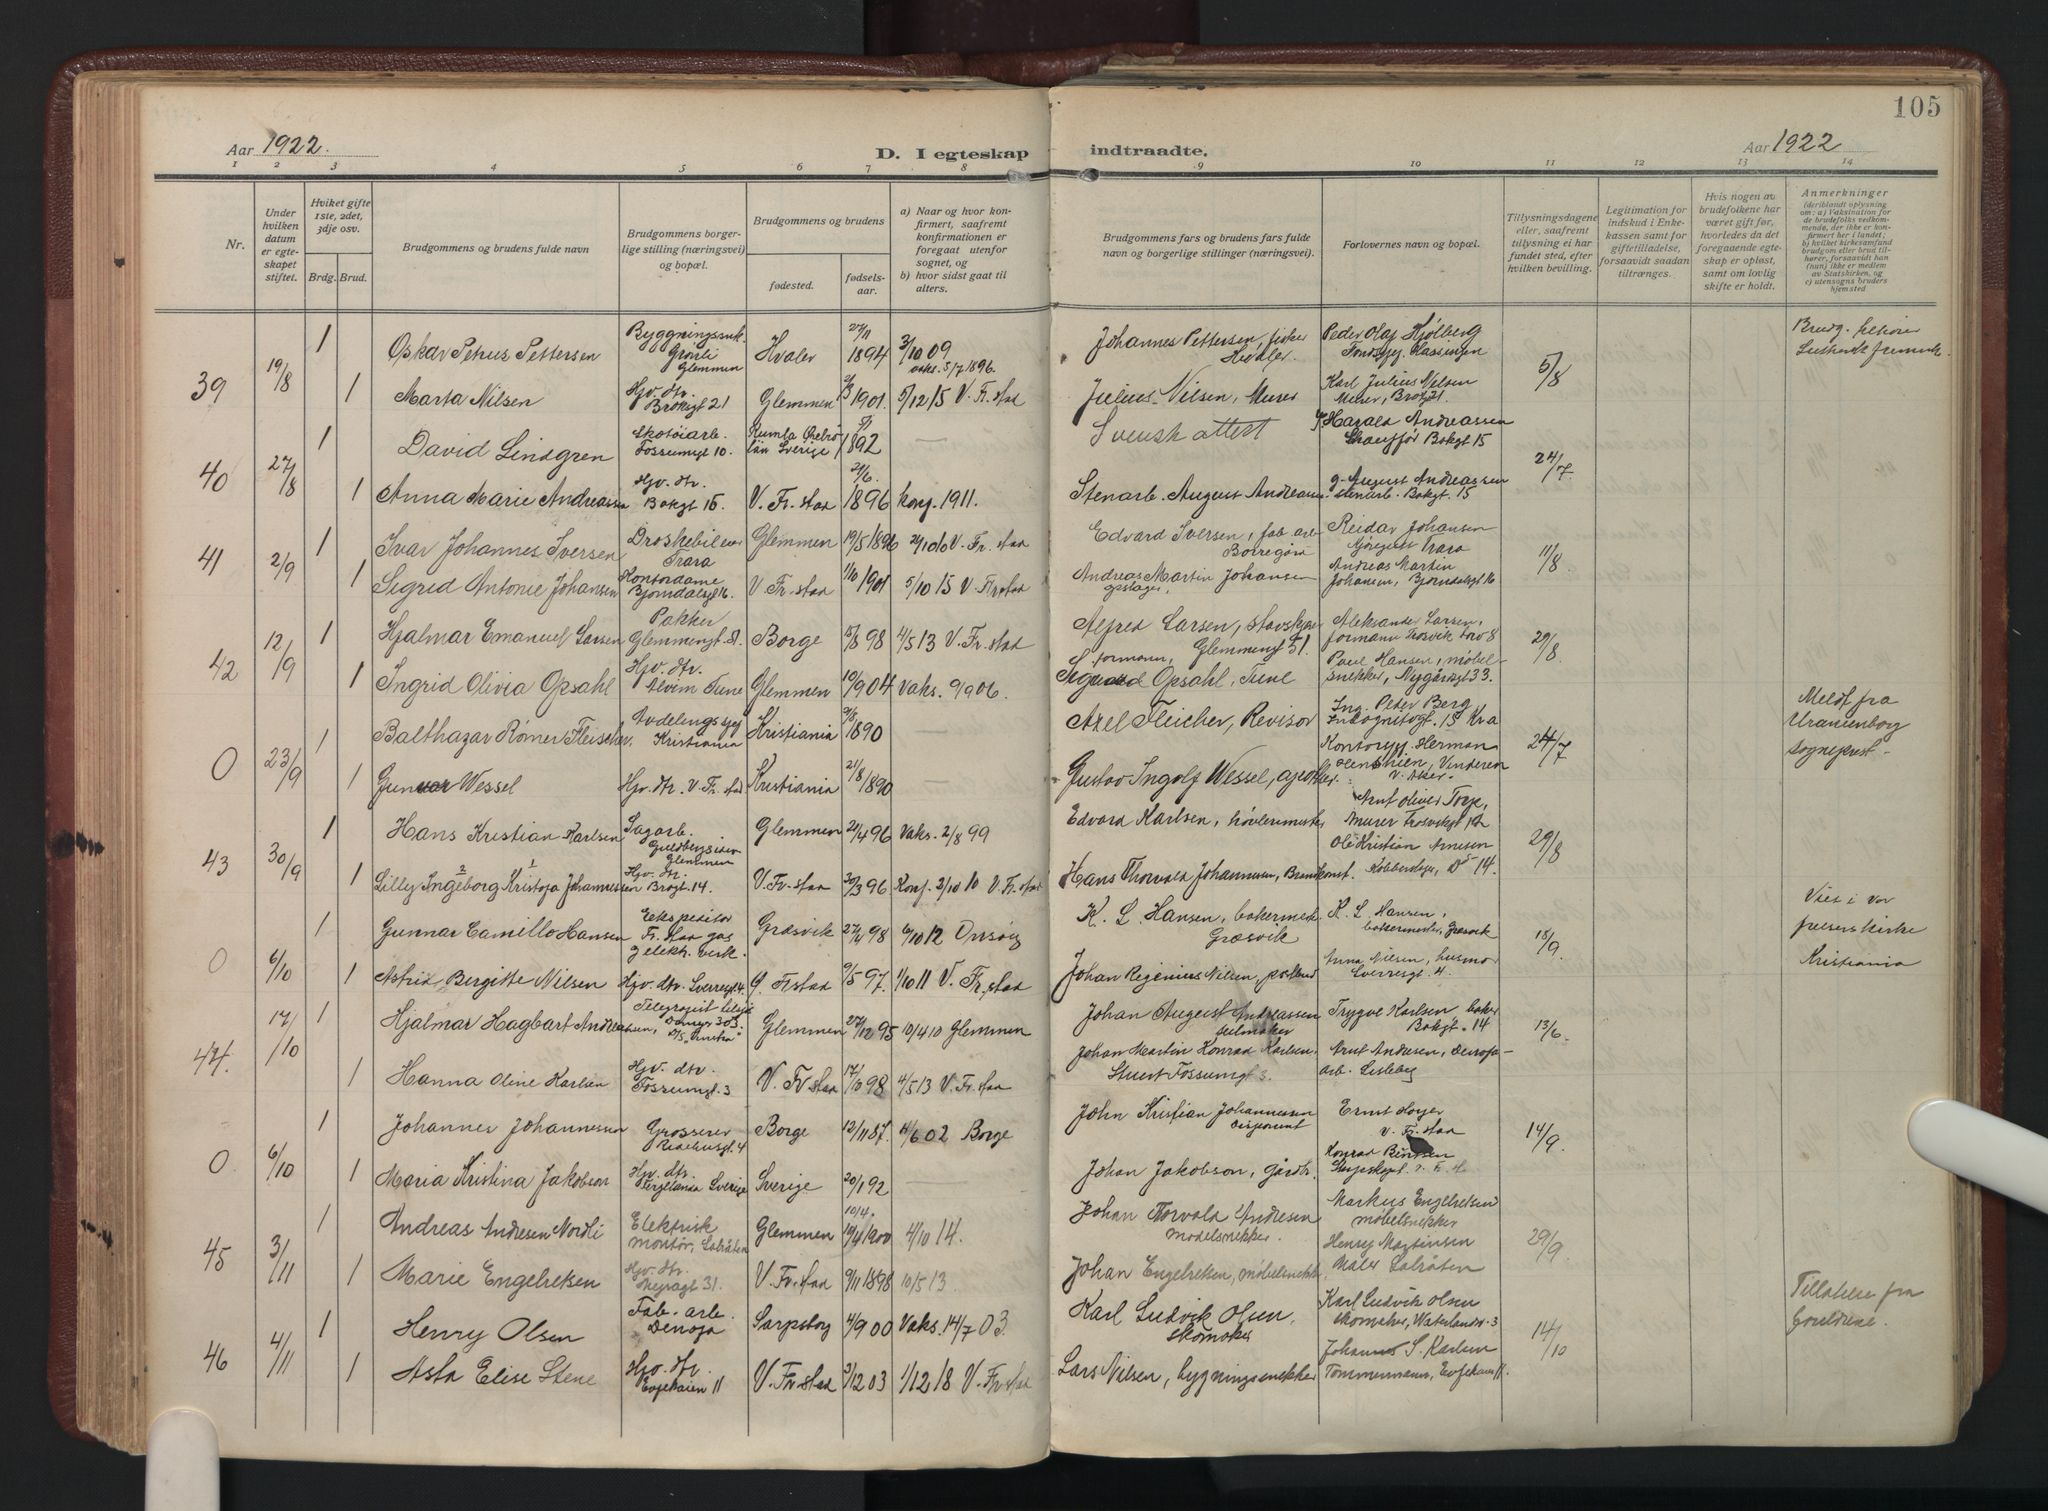 105
Aar 1922.
D. I egteskap indtraadte.
Aar 1922
1 2 3 4 5 6 7 8 9 10 11 12 13 14
Nr.
Under hvilken datum er egteskapet stiftet.
Hviket gifte 1ste, 2det, 3dje osv.
Brdg. Brud.
Brudgommens og brudens fulde navn
Brudgommens borgerlige stilling (næringsvei) og bopæl.
Brudgommens og brudens
fødested.
fødselsaar.
a) Naar og hvor konfirmert, saafremt konfirmationen er foregaat utenfor sognet, og
b) hvor sidst gaat til alters.
Brudgommens fars og brudens fars fulde navn og borgerlige stillinger (næringsvei).
Forlovernes navn og bopæl.
Tillysningsdagene eller, saafremt tillysning ei har fundet sted, efter hvilken bevilling.
Legitimation for indskud i Enkekassen samt for giftetilladelse, forsaavidt saadan tiltrænges.
Hvis nogen av brudefolkene har været gift før, hvorledes da det foregaaende egteskap er opløst, samt om lovlig skifte er holdt.
Anmerkninger
(deriblandt oplysning om: a) Vaksination for de brudefolks vedkommende, der ikke er konfirmert her i landet; b) hvilket kirkesamfund brudgom eller brud tilhører, forsaavidt han (hun) ikke er medlem av Statskirken, og c) utensogns bruders hjemsted
39 19/8
1 Oskar Petrus Pettersen Glemmen Hvaler 27/11 1894 3/10 09 vaks. 5/7 1896. Johannes Pettersen, fisker Peder Olaf Hjølberg 5/8
1 Marta Nilsen Hjv. dtr. Brøksgt 21 Glemmen 2/3 1901. 5/12 15 V. Fr. stad Julius Nilsen, Murer Karl Julius Nilsen Murer, Brøksgt 21.
40 27/8
1 David Lindgren Skotøiarb. Fossumsgt 10. Kumla Ørebro län Sverige 1892 — Svensk attest Harald Andreassen Bakgt 15 24/7
1 Anna Marie Andreassen Hjv. dtr. Bakgt 15. V. Fr. stad 21/6. 1896 konf. 1911. Stenarb. August Andreassen August Andreassen stenarb. Bakgt. 15
41 2/9
1 Ivar Johannes Iversen Droskebileier Trara Glemmen 19/5 1896 V. Fr. stad Edvard Iversen, fab. arb. Reidar Johansen Trara 11/8
1 Sigrid Antonie Johansen Kontordame Bjørndalsgt 16. V. Fr. stad 1/10 1901 5/10 15 V. Fr stad Andreas Martin Johansen Andreas Martin Johansen, Bjørndalsgt 16
42 12/9
1 Hjalmar Emanuel Larsen Pakker Glemmengt 51. Borge 15/8 98 4/5 13 V. Fr. stad Alfred Larsen, formann, Glemmengt 51. Aleksander Larsen, formann Trosvik torv 8 29/8
1 Ingrid Olivia Opsahl Hjv. dtr. Alvim Tune Glemmen 10/9 04 Vaks. 9/9 06. Sigurd Opsahl, Tune Paul Hansen, møbelsnekker, Nygårdsgt 33.
0 23/9
1 Balthazar Rømer Fleischer, Kristiania Kristiania 1890 — Axel Fleicher, Revisor Ing. Peter Berg Incognitogt. 15 Kra 24/7 Meldt fra Uranienborg sogneprest —
1 Gunvor Wessel Hjv. dtr. V. Fr. stad Kristiania 21/8 1890 — Gustav Ingolf Wessel, apotheker. Herman Vinderen
43 30/9
1 Hans Kristian Karlsen Sagarb. Glemmen Glemmen 21/4 96 Vaks. 2/8 99 Edvard Karlsen, høvlerimester Arnt Oliver Torp, murer Trosviksgt 12 29/8
1 Lilly Ingeborg Kristofa Johannessen Hjv. dtr. Brogt. 14. V. Fr. stad 30/3 96 Konf. 2/10 10 V. Fr. stad Hans Thorvald Johannessen, Brandkonst. Ole Kristian Arnesen
0 6/10
1 Gunnar Camillo Hansen Ekspeditør Fr. stad gas & elektr. verk. Græsvik 27/4 98 6/10 12 Onsøy K. L. Hansen, bakermester Græsvik K. L. Hansen, bakermester, Græsvik 15/9. Viet i Vor frelsers kirke Kristiania
1 Astrid Bergitte Nilsen Hjv. dtr. Sverresgt 4. G. Fr.stad 9/5 97. 1/10 11 V. Fr. stad Johan Regenius Nilsen, postbud Anna Nilsen, husmor Sverresgt. 4.
44. 17/10
1 Hjalmar Hagbart Andreassen, Glemmen 27/12 95 10/4 10 Glemmen Johan August Andreassen seilmaker Trygve Karlsen baker Bakgt. 14 13/6.
1 Hanna Oline Karlsen Hjv. dtr. Fossumsgt. 3 V. Fr stad 17/10 98 4/5 13 V. Fr. stad Johan Martin Konrad Karlsen. Stuert Fossumgt 3. Arnt Andresen, Denofaarb. Lisleby
0 6/10
1 Johannes Johannessen Grosserer Raadhusgt 4 Borge 12/11 87. 1/6 02 Borge John Kristian Johannessen disponent Ernst Høyer V. Fr. stad 14/9.
1 Maria Kristina Jakobson Hjv. dtr. Sverige Sverige 20/1 92 — Johan Jakobson, gårdbr. Konrad
45 3/11
1 Andreas Andresen Nordli Elektrisk montør, Labråten Glemmen 10/4. 1900 4/10 14. Johan Torvald Andresen modelsnekker. Markus Engelretsen møbelsnekker 29/9
1 Marie Engelretsen Hjv. dtr. 31. V. Fr. stad 9/11 1898 10/5 13 Johan Engelretsen, møbelsnekker Henry Martinsen Maler Labråten
46 4/11
1 Henry Olsen Fab. arb. Denofa Sarpsborg 4/9 00 Vaks. 14/7 03. Karl Ludvik Olsen, skomaker Karl Ludvik Olsen skomaker, Waterlandsv. 3 14/10 Tillatelse fra foreldrene.
1 Asta Elise Stene Hjv. dtr. Evjekaien 11 V. Fr stad 3/12 03 1/12 18 V. Fr stad Lars Nilsen, bygningssnekker Johannes S. Karlsen Tømmermann, Evjekaien 11.